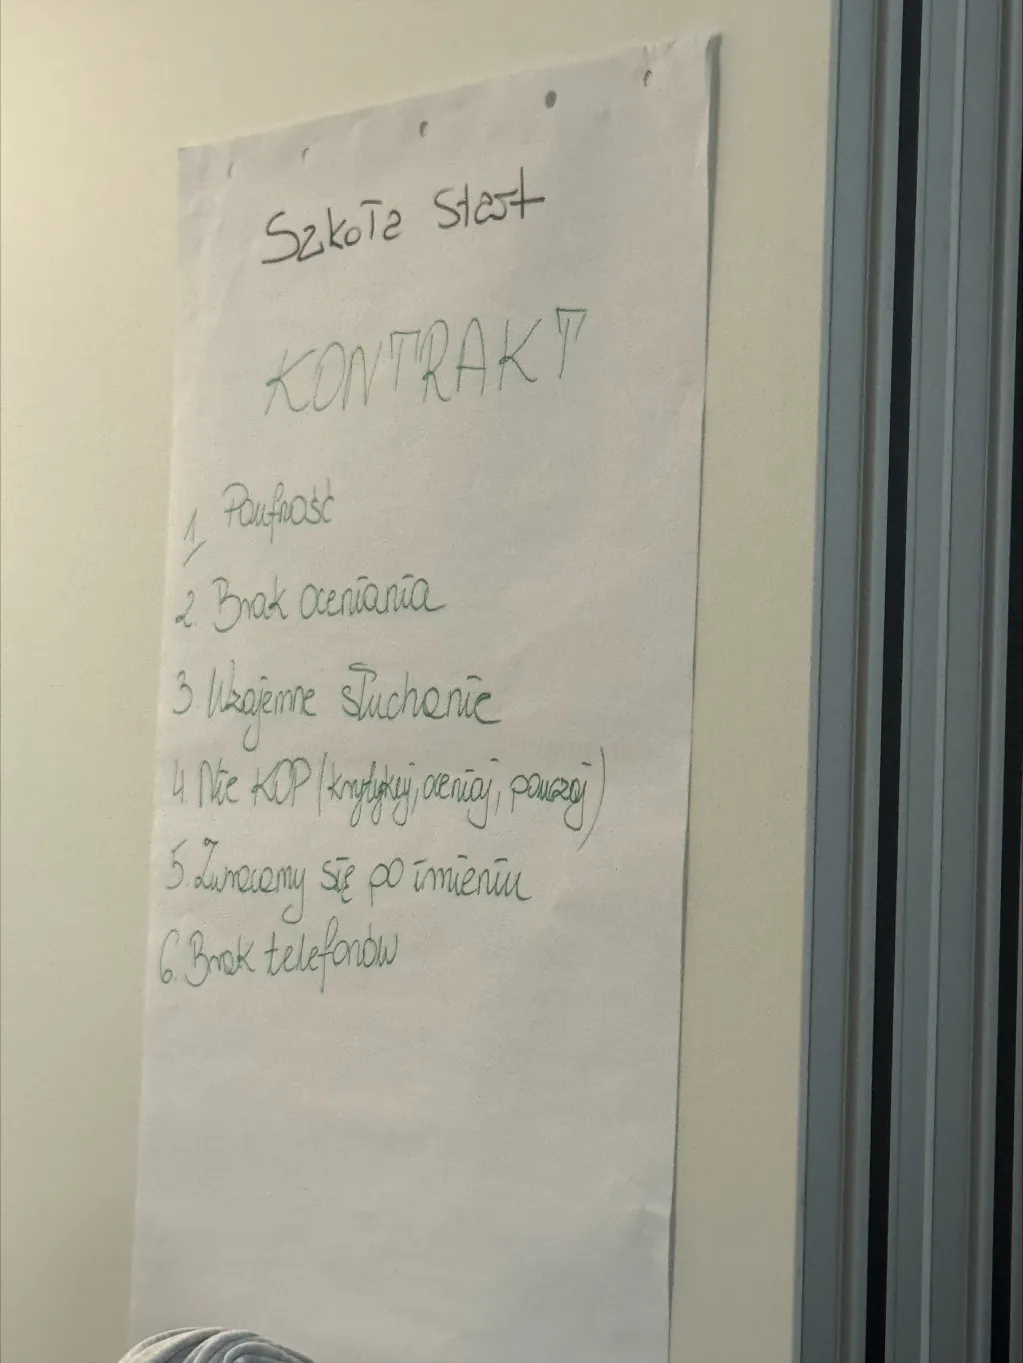 Szkoła Start
KONTRAKT
1. Poufność
2. Brak oceniania
3. Wzajemne słuchanie
4. Nie KOP (krytykuj, oceniaj, pouczaj)
5. Zwracamy się po imieniu
6. Brak telefonów